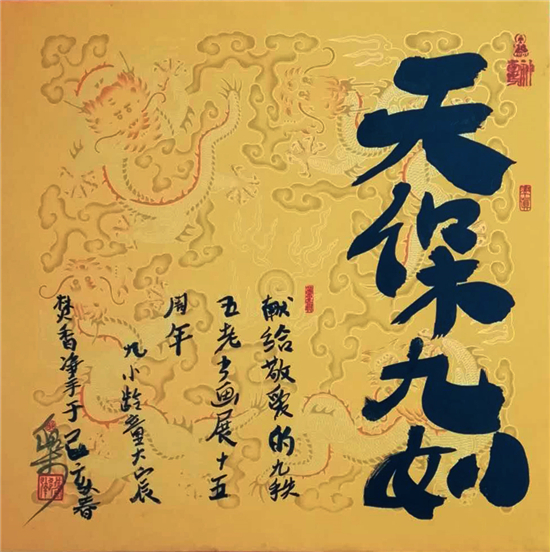 天保九如
献给敬爱的九秩
五老书画展十五
周年
九小龄童大宸
焚香净手于己亥春